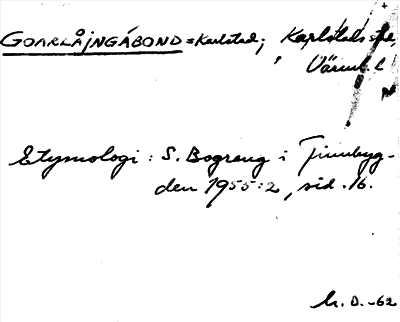 GOARLÅJNGÁBOND = Karlstad; Karlstads stad,
Värml. l
Etymologi: S. Bograng i Finnbyg-
den 1955:2, sid. 16.
h. D. -62